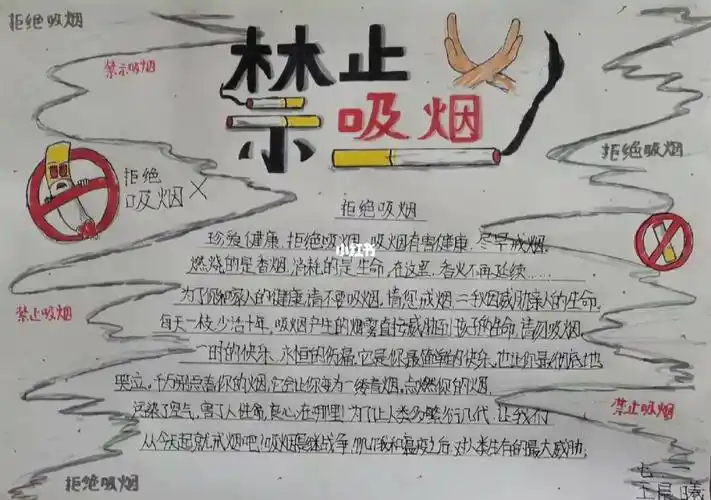 拒绝吸烟
禁示吸烟
禁止
吸烟
拒绝吸烟
拒绝
吸烟
拒绝吸烟
珍爱健康,拒绝吸烟,吸烟有害健康,尽早戒烟.
小红书
燃烧的是香烟,消耗的是生命,在这里,香火不再延续……
为了你和家人的健康,请不要吸烟,请您戒烟,二手烟威胁亲人的生命,
禁止吸烟
每天一枝,少活十年,吸烟产生的烟雾直接威胁到孩子的生命,请勿吸烟,
一时的快乐,永恒的伤痛,它是你最简单的快乐,也让你最彻底地
哭泣,千万别点着你的烟,它会让你变为一缕青烟,点燃你的烟
污染了空气,害了人性命,良心在哪里!为了让人类多繁衍几代,让我们
禁止吸烟
从今天起就戒烟吧!吸烟是继战争,饥饿和瘟疫之后,对人类生存的最大威胁.
拒绝吸烟
七